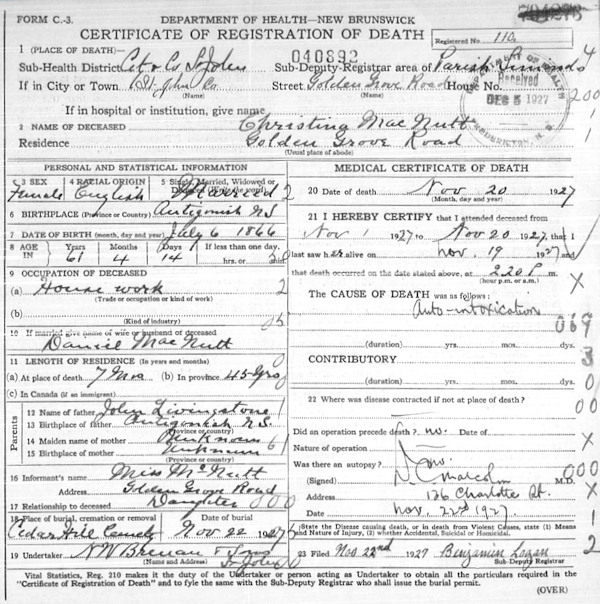 FORM C.-3.
DEPARTMENT OF HEALTH—NEW BRUNSWICK
CERTIFICATE OF REGISTRATION OF DEATH
Registered No. 110.
1 (PLACE OF DEATH)—
040892
Sub-Health District Cit & Co St John Sub-Deputy-Registrar area of Parish Simonds 4
If in City or Town St John Co. Street Golden Grove Road House No.
(Name) (Name)
DEPARTMENT OF HEALTH
Received
DEC 5 1927
FREDERICTON, N. B.
200
If in hospital or institution, give name
2 NAME OF DECEASED Christina Mac Nutt 1
Residence Golden Grove Road 1
(Usual place of abode)
PERSONAL AND STATISTICAL INFORMATION
3 SEX 4 RACIAL ORIGIN 5 Single, Married, Widowed or
Female English Married 2
6 BIRTHPLACE (Province or Country) Antigonish N S
7 DATE OF BIRTH (month, day and year) July 6 1866
8 AGE IN Years Months Days If less than one day.
61 4 14 hrs. or
9 OCCUPATION OF DECEASED
(a) House work 2
(Trade or occupation or kind of work)
(b)
(Kind of industry) 05
10 If married give name of wife or husband of deceased
Daniel Mac Nutt
11 LENGTH OF RESIDENCE (In years and months) 0
(a) At place of death 7 Mos (b) In province 45 yrs
(c) In Canada (if an immigrant)
Parents
12 Name of father John Livingstone 1
13 Birthplace of father Antigonish N.S.
(Province or country)
14 Maiden name of mother Unknown 6 1
15 Birthplace of mother Unknown
(Province or country)
16 Informant's name Miss McNutt
Address Golden Grove Road
17 Relationship to deceased Daughter 000
18 Place of burial, cremation or removal Date of burial
Cedar Hill Cemety Nov 22 1927
19 Undertaker N W Brenan & Sons
St John
MEDICAL CERTIFICATE OF DEATH
20 Date of death Nov 20 1927
(Month, day and year)
21 I HEREBY CERTIFY that I attended deceased from
Nov 1 1927 to Nov 20 1927, that I
last saw her alive on Nov. 19 1927 and
that death occurred on the date stated above, at 2.20 P. m. X
(hour p.m. or a.m.)
The CAUSE OF DEATH was as follows:
Auto-intoxication
069
(duration) yrs. mos. dys.
CONTRIBUTORY 3
(duration) yrs. mos. dys. 0
22 Where was disease contracted if not at place of death?
00
Did an operation precede death? no. Date of X
Nature of operation X
Was there an autopsy? no.
(Signed) Malcolm M.D. 000
Address 136 Charlotte St. X
Date Nov. 22nd 1927. X
State the Disease causing death, or in death from Violent Causes, state (1) Means
and Nature of Injury, (2) whether Accidental, Suicidal or Homicidal. 1
23 Filed Nov 22nd 1927 Benjamin Logan 2
Sub-Deputy Registrar
Vital Statistics, Reg. 210 makes it the duty of the Undertaker or person acting as Undertaker to obtain all the particulars required in the
"Certificate of Registration of Death" and to fyle the same with the Sub-Deputy Registrar who shall issue the burial permit.
(OVER)